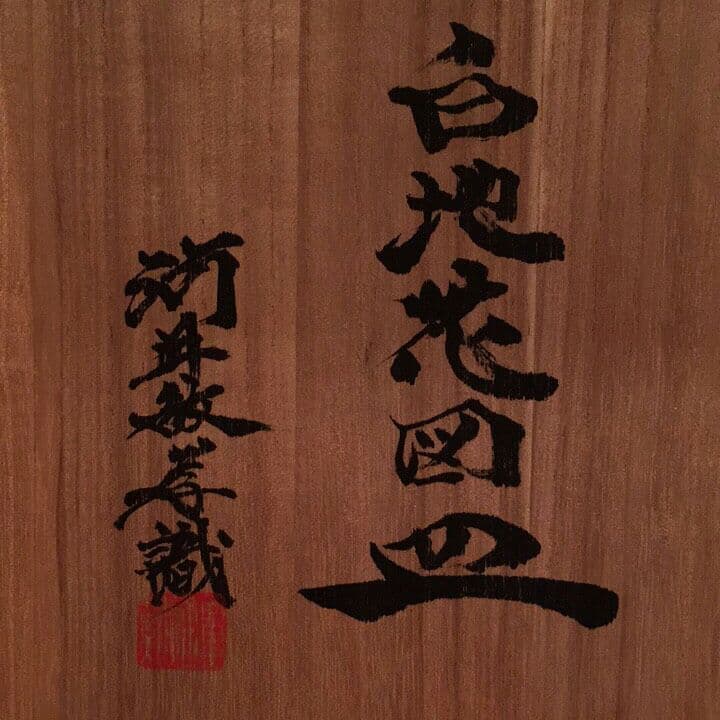 白地花図皿
河井敏孝識